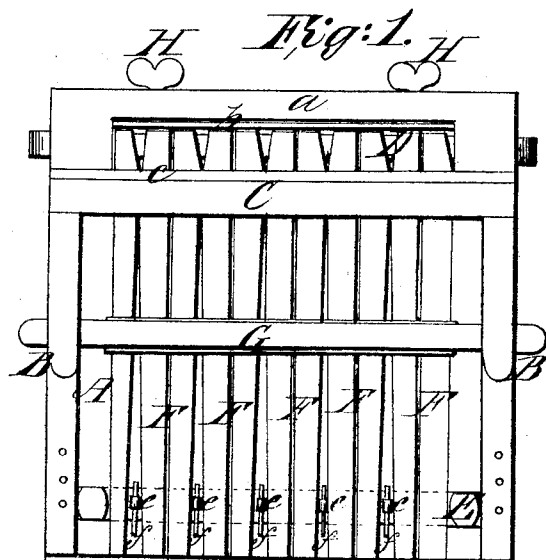 Fig: 1.
H H
a
b D
c
C
G
B B
A
F F F F F
E
e e e e e
f f f f f